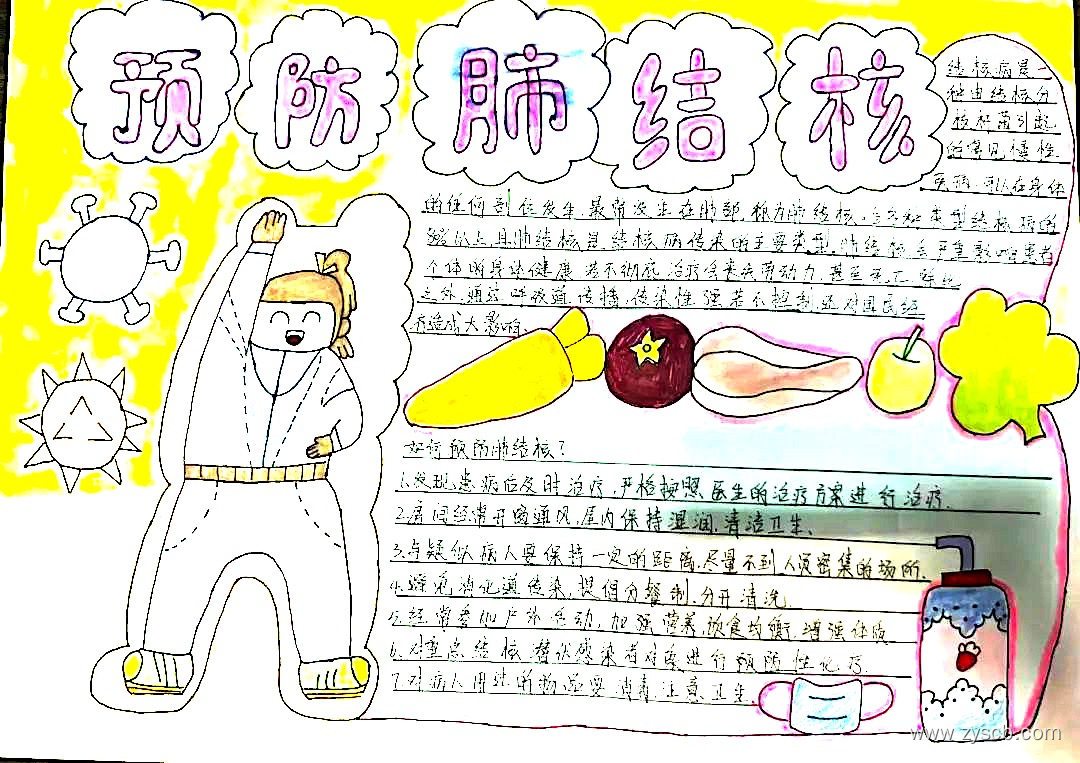 预防肺结核
结核病是一
种由结核分
枝杆菌引起
的常见慢性
疾病,可以在身体
的任何部位发生,最常发生在肺部,称为肺结核,各种类型结核病的
以上且肺结核是结核病传染的主要类型,肺结核会严重影响患者
个体的身体健康,若不彻底治疗会丧失劳动力,甚至死亡,除此
之外,通过呼吸道传播,传染性强若不控制还对国民经
济造成大影响.
如何预防肺结核?
1.发现患病后及时治疗,严格按照医生的治疗方案进行治疗.
2.房间经常开窗通风,屋内保持湿润,清洁卫生、
3.与疑似病人要保持一定的距离,尽量不到人员密集的场所.
4.避免消化道传染,提倡分餐制,分开清洗.
5.经常参加户外活动,加强营养,饮食均衡,增强体质
6.对重点结核潜伏感染者对应进行预防性化疗.
7.对病人用过的物品要消毒,注意卫生.
www.zyscb.com